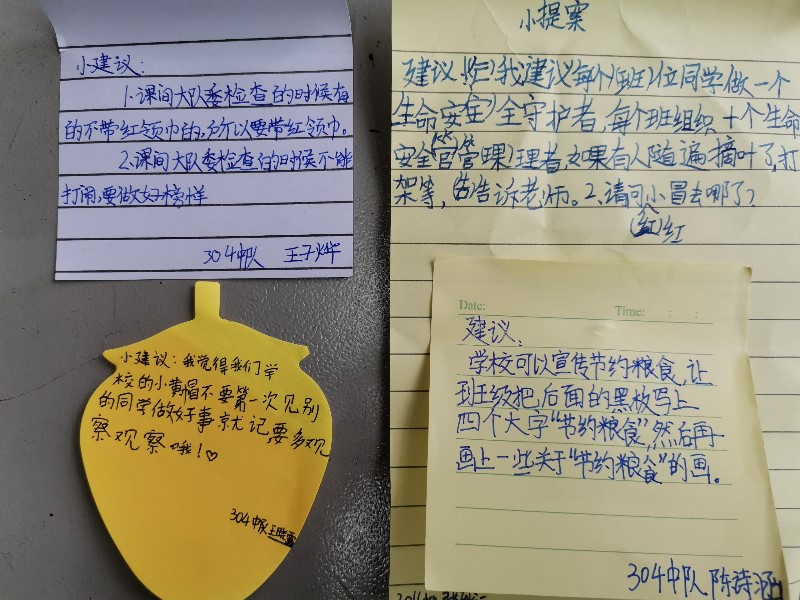 小建议：
1.课间大队委检查的时候有
的不带红领巾的，所以要带红领巾。
2.课间大队委检查的时候不能
打闹，要做好榜样
304中队 王子烨
小提案
建议 我建议每个班位同学做一个
生命安全守护者，每个班组织十个生命
安全管理者，如果有人随遍摘叶了，打
架等，告诉老师。2.请问小红冒去哪了？
红
小建议：我觉得我们学
校的小黄帽不要第一次见别
的同学做好事就记，要多观
察观察哦！♡
304中队
Date: Time: : :
建议：
学校可以宣传节约粮食，让
班级把，后面的黑板写上
四个大字“节约粮食”，然后再
画上一些关于“节约粮食”的画。
304中队 陈诗涵